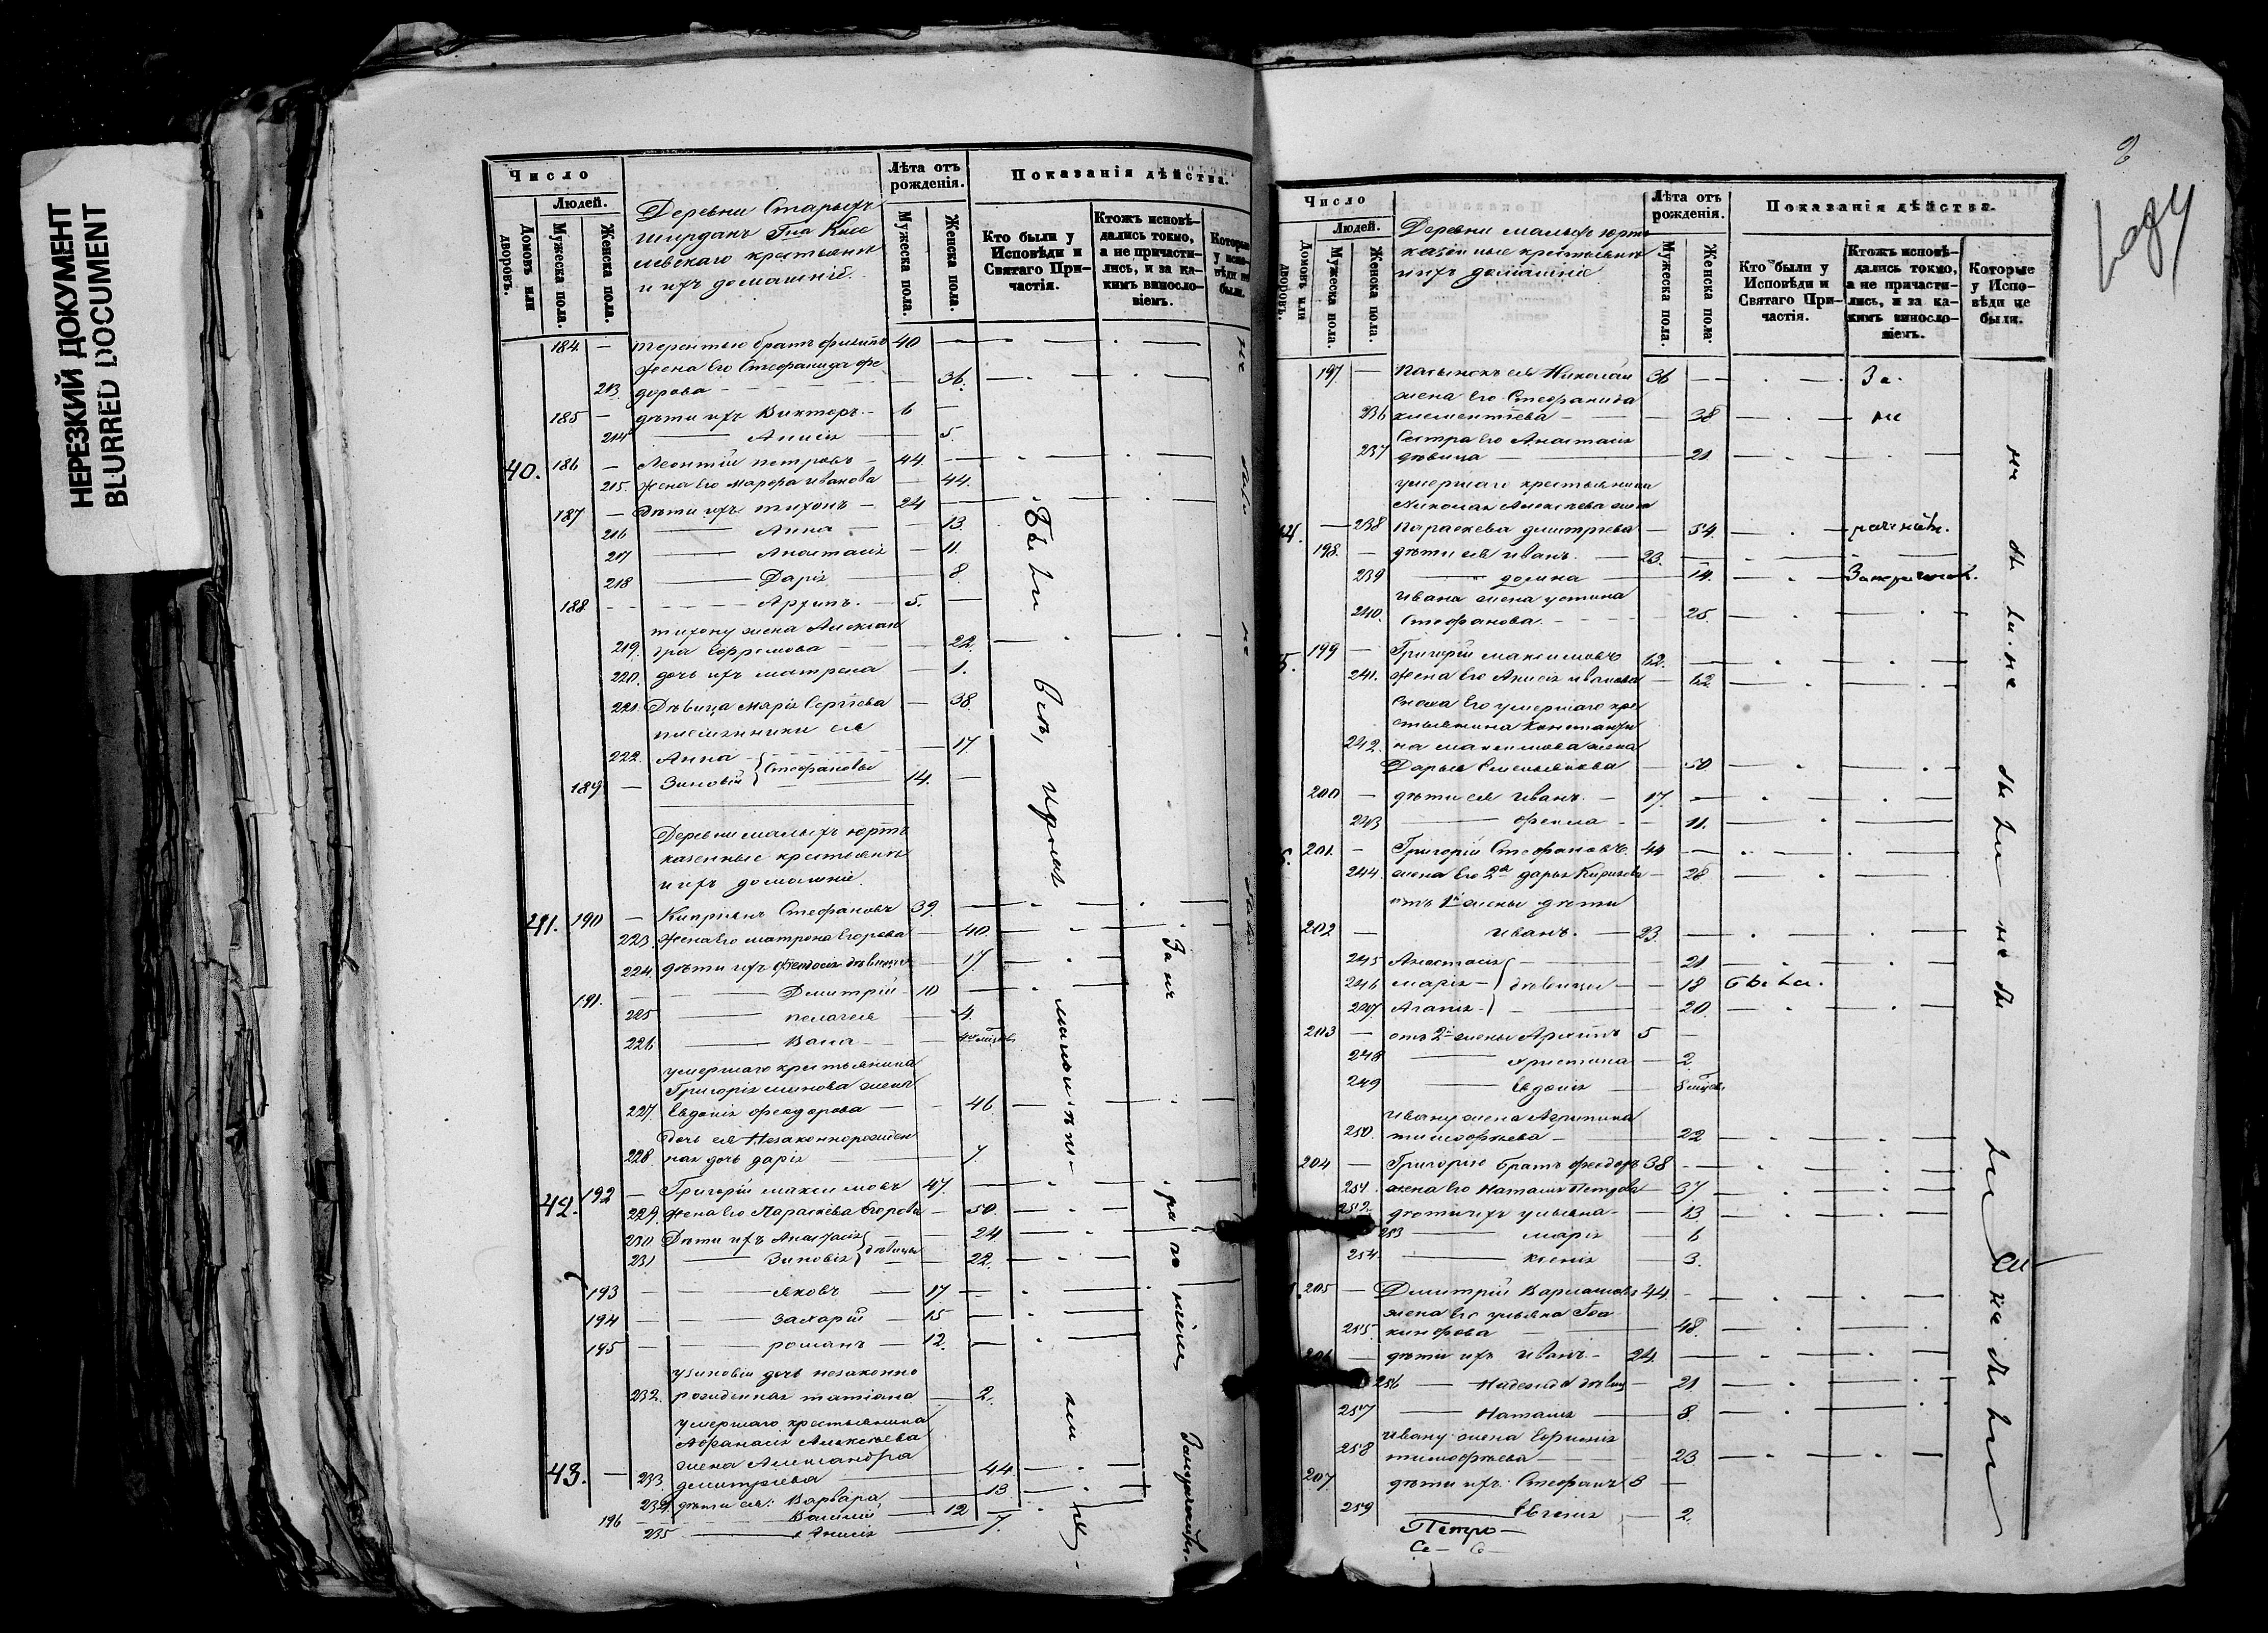 НЕРЕЗКИЙ ДОКУМЕНТ
BLURRED DOCUMENT
Число
Людей.
Домовъ или дворовъ.
Мужеска пола.
Женска пола.
Деревни Старыхъ
Ширданъ Гна Кисе
левскаго крестьяне
и ихъ домашніе.
Лѣта отъ рожденія.
Мужеска пола.
Женска пола.
Показанія дѣйства.
Кто были у Исповѣди и Святаго Причастія.
Ктожъ исповѣдались токмо, а не причастились, и за какимъ винословіемъ.
Которые у исповѣди не были.
184 — Терентью братъ Филипъ 40 —
жена его Стефанида Фе
213 дорова — 36.
185 — дѣти ихъ Викторъ — 6 —
214 — Анисія — 5.
40. 186 — Леонтій Петровъ — 44. —
215. жена его Марфа Иванова — 44.
187 — Дѣти ихъ Тихонъ — 24 —
216 — Анна — 13.
217 — Анастасія — 11.
218 — Дарія — 8.
188 — Архипъ. — 5. —
Тихону жена Алексан
219. дра Ефремова — 22.
220. дочь ихъ Матрена — 1.
221. Дѣвица Марія Сергіева — 38.
племянники ея
222. Анна — 17.
Стефановы
189 — Зиновій — 14. —
Деревни малыхъ юртъ
казенные крестьяне
и ихъ домашніе.
41. 190 — Кипріянъ Стефановъ 39. —
223. жена его Матрона Егорова — 40.
224. дѣти ихъ Феодосія дѣвица — 17.
191. — Димитрій — 10 —
225 — Пелагея — 4.
226 — Васса —
умершаго крестьянина
Григорія жена
227. Евдокія Феодорова — 46.
дочь ея незаконнорожден
228. ная дочь Дарія — 7.
42. 192 — Григорій Максимовъ 47. —
229. жена его Параскева Егорова — 50.
230 Дѣти ихъ Анастасія — 24
дѣвицы
231 — Зиновія — 22.
193 — Яковъ — 17 —
194 — Захарій — 15 —
195 — Романъ — 12. —
у Зиновіи дочь незаконно
232. рожденная Татіана — 2.
умершаго крестьянина
Афанасія Алексѣева
жена Александра
43. — 233. Димитріева — 44
234 дѣти ея: Варвара — 13
196 — Василій — 12 —
235 — Анисія — 7.
Были всѣ, кромѣ малолѣтнихъ
Число
Людей.
Домовъ или дворовъ.
Мужеска пола.
Женска пола.
Деревни малыхъ юртъ
казенные крестьяне
и ихъ домашніе
Лѣта отъ рожденія.
Мужеска пола.
Женска пола.
Показанія дѣйства.
Кто были у Исповѣди и Святаго Причастія.
Ктожъ исповѣдались токмо, а не причастились, и за какимъ винословіемъ.
Которые у Исповѣди не были.
197. — Пасынокъ ея Николай 36 —
жена его Стефанида
236 Климентіева — 38
Сестра его Анастасія
237 дѣвица — 21
умершаго крестьянина
Николая Алексѣева жена
— 238 Параскева Димитріева — 54.
198. — дѣти ея Иванъ. — 23. —
239 — Домна — 14.
Ивана жена Устина
240. Стефанова. — 25.
199 — Григорій Максимовъ 62. —
241. жена его Анисія Иванова — 62
сноха его умершаго кре
стьянина Константи
242. на Максимова жена
Дарья Емельянова — 50.
200 — дѣти ея Иванъ. — 17. —
243 — Фекла — 11.
201. — Григорій Стефановъ 44 —
244. жена его 2я Дарья — 28.
отъ 1й жены дѣти
202 — Иванъ. — 23. —
245 Анастасія — 21
246 Марія — дѣвицы — 18 Была.
247 Агапія — 20.
203 — отъ 2й жены Архипъ 5 —
248 — Христина — 2.
249 — Евдокія —
Ивану жена Агрипина
250. Тимофеева — 22
204 — Григорію братъ Феодоръ 38 —
251. жена его Наталья Петрова — 37
252. дѣти ихъ Ульяна — 13
253 — Марія — 6
254 — Ксенія — 3.
205 — Димитрій Варламовъ 44. —
жена его Ульяна
255. — 48.
206 — дѣти ихъ Иванъ — 24. —
256 — Надежда дѣвиц — 21
257 — Наталія — 8.
Ивану жена Евфимія
258 Тимофеева — 23
207 дѣти ихъ: Стефанъ 3 —
259 — Евгенія — 2.
Петро —